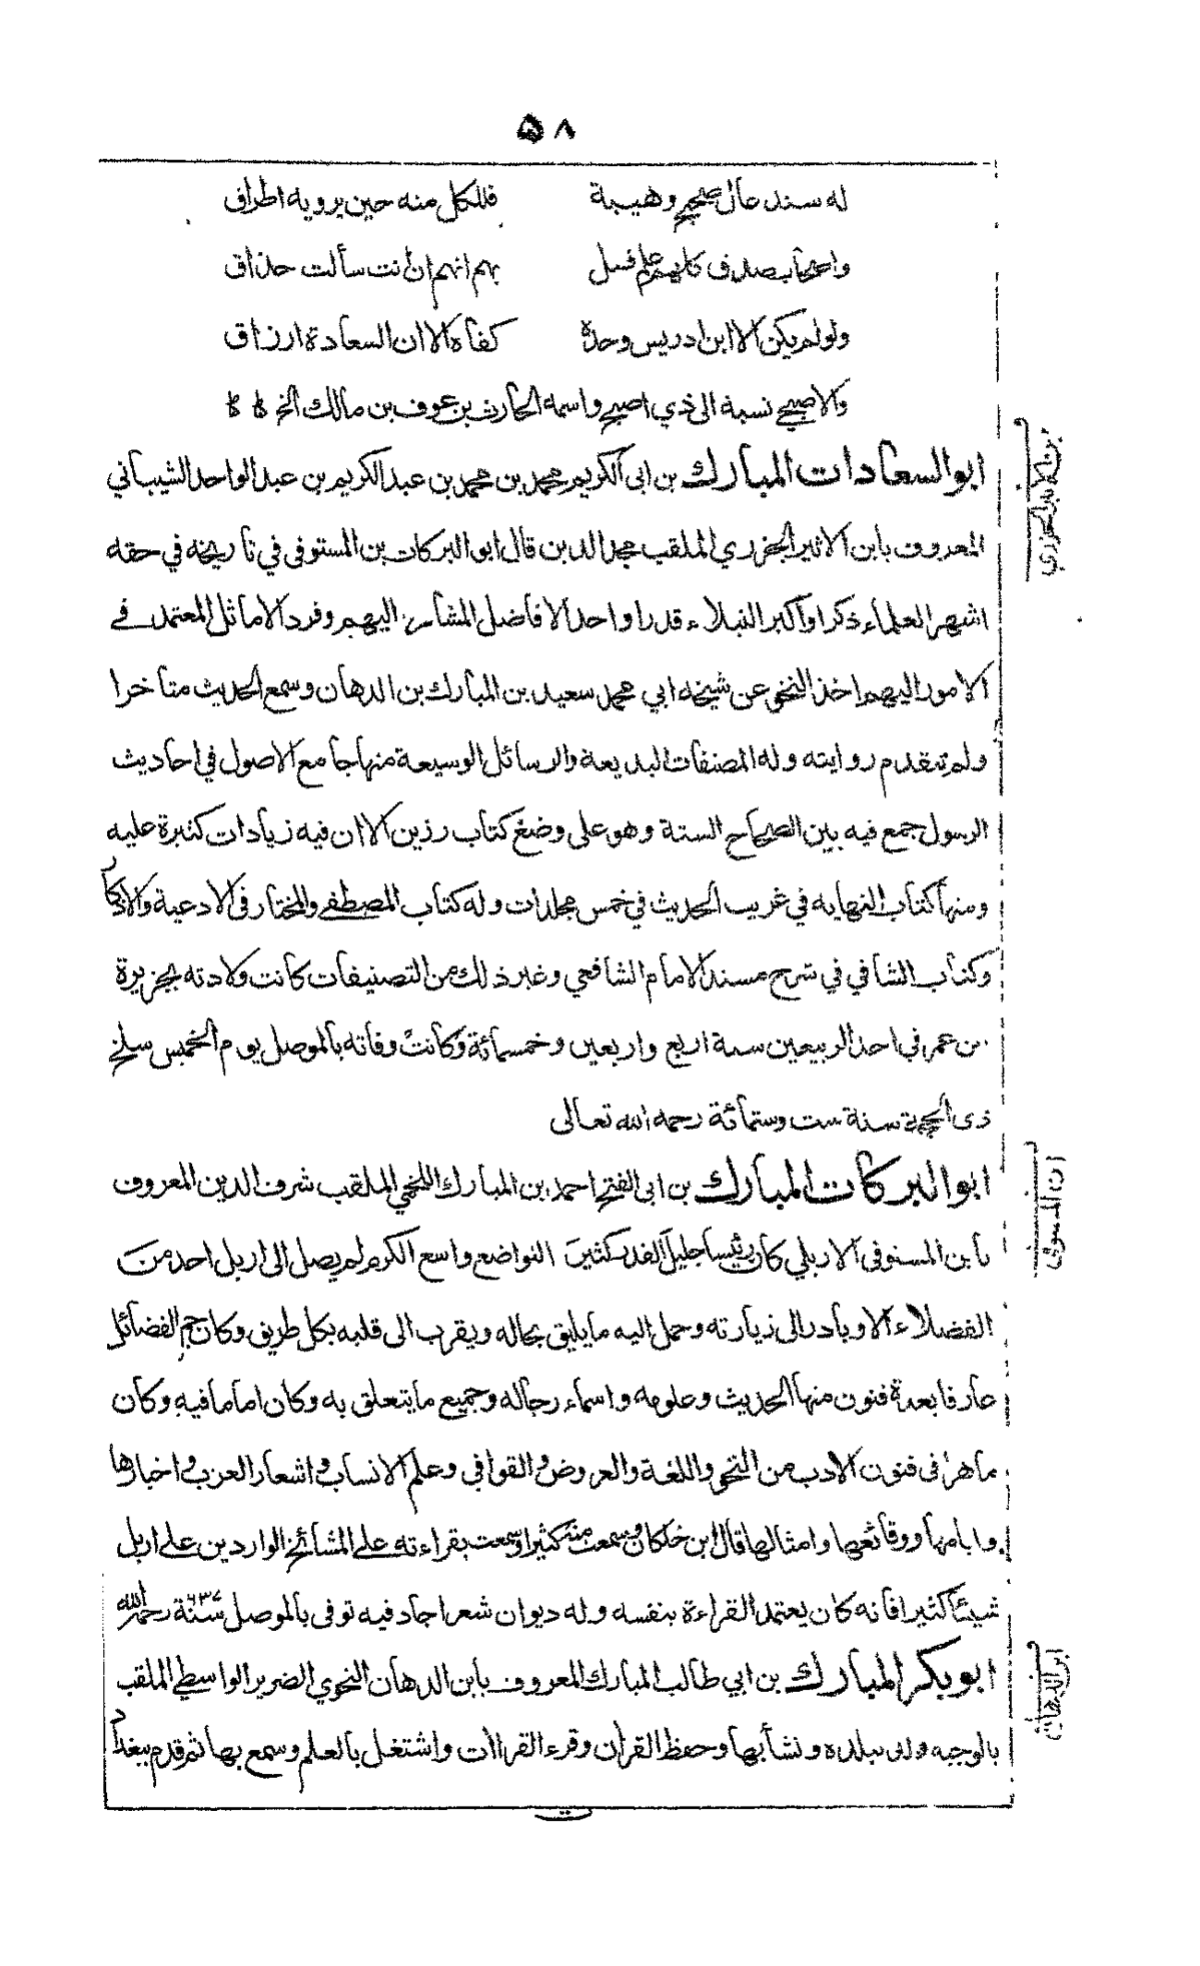 ۵۸
له سند عال صحيح وهيبة فللكل منه حين يرويه اطراق
واصحاب صدق كلهم علم فسل بهم انهم ان انت سألت حذاق
ولو لم يكن الا ابن ادريس وحدة كفاه الا ان السعادة ارزاق
والاصبحي نسبة الى ذي اصبح واسمه الحارث بن عوف بن مالك الخ
ابو السعادات المبارك بن ابى الكريم محمد بن محمد بن عبد الكريم بن عبد الواحد الشيباني
المعروف بابن الاثير الجزري الملقب مجد الدين قال ابو البركات بن المستوفى في تاريخه في حقه
اشهر العلماء ذكرا واكبر النبلاء قدرا واحد الافاضل المشار اليهم وفرد الاماثل المعتمد فے
الامور اليهم اخذ النخو عن شيخه ابي محمد سعيد بن المبارك بن الدهان وسمع الحديث متاخرا
ولم تتقدم روايته وله المصنفات البديعة والرسائل الوسيعة منها جامع الاصول في احاديث
الرسول جمع فيه بين الصحاح الستة وهو على وضع كتاب رزين الا ان فيه زيادات كثيرة عليه
ومنها كتاب النهايه في غريب الحديث في خمس مجلدات وله كتاب المصطفے والمختار فى الادعية والاذكار
وكتاب الشافي في شرح مسند الامام الشافعي وغير ذلك من التصنيفات كانت ولادته بجزيرة
بن عمر في احد الربيعين سنة اربع واربعين وخمسمائة وكانت وفاته بالموصل يوم الخميس سلخ
ذى الحجة سنة ست وستمائة رحمه الله تعالى
ابو البركات المبارك بن ابى الفتح احمد بن المبارك اللخمي الملقب شرف الدين المعروف
بابن المستوفى الاربلي كان رئيسا جليل القدر كثير التواضع واسع الكرم لم يصل الى اربل احد من
الفضلاء الا وبادر الى زيارته وحمل اليه ما يليق بحاله ويقرب الى قلبه بكل طريق وكان جم الفضائل
عارفا بعدة فنون منها الحديث وعلومه واسماء رجاله وجميع ما يتعلق به وكان اماما فيه وكان
ماهرا فى فنون الادب من النحو واللغة والعروض والقوافي وعلم الانساب واشعار العرب واخبارها
وايامها ووقائعها وامثالها قال ابن خلكان وسمعت منه كثيرا وسمعت بقراءته علے المشائخ الواردين علے اربل
شيئا كثيرا فانه كان يعتمد القراءة بنفسه وله ديوان شعر اجاد فيه توفى بالموصل سنة ٦٣٧ رحمه الله
ابو بكر المبارك بن ابي طالب المبارك المعروف بابن الدهان النحوي الضرير الواسطي الملقب
بالوجيه ولد ببلده ونشأ بها وحفظ القران وقرء القراات واشتغل بالعلم وسمع بها ثم قدم ببغداد
ابن المستوفى
ابن الدهان